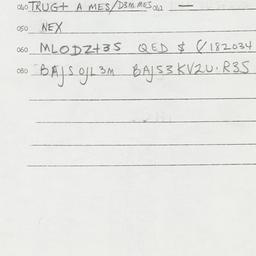 040 TRUG+ A MES/D3M.MES 042 —
050 NEX
060 MLODZ+35 QED $ (/182034
080 BAJSOJL3M BAJ53KV2U.R3S